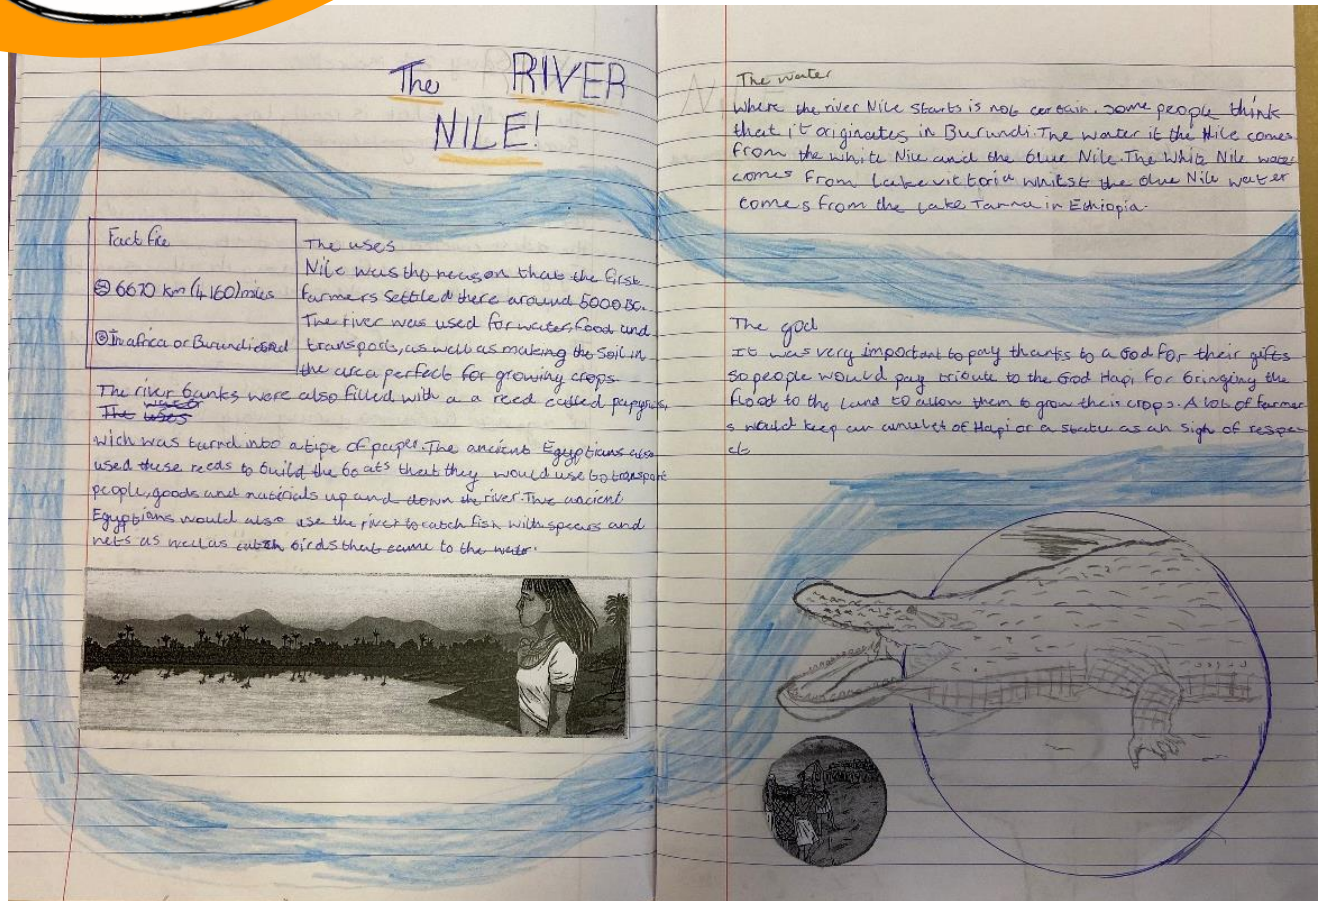 The RIVER
NILE!
Fact file
6670 km (4160) miles
In africa or Burundi
The uses
Nile was the reason that the first
farmers settled there around 5000 BC.
The river was used for water, food and
transport, as well as making the soil in
the area perfect for growing crops.
The river banks were also filled with a a reed called papyrus,
The uses
wich was turnd into a tipe of paper. The ancient Egyptians also
used these reeds to build the boats that they would use to transport
people, goods and materials up and down the river. The ancient
Egyptians would also use the river to catch fish with spears and
nets as well as catch birds that came to the water.
The water
Where the river Nile starts is not certain. some people think
that it originates in Burundi. The water it the Nile comes
from the white Nile and the blue Nile. The White Nile water
comes from Lake victoria whilst the blue Nile water
comes from the Lake Tanna in Ethiopia.
The god
It was very important to pay thanks to a God for their gifts
so people would pay tribute to the God Hapi for bringing the
flood to the land to allow them to grow their crops. A lot of farmer
s would keep an amulet of Hapi or a statu as an sign of respe
ct